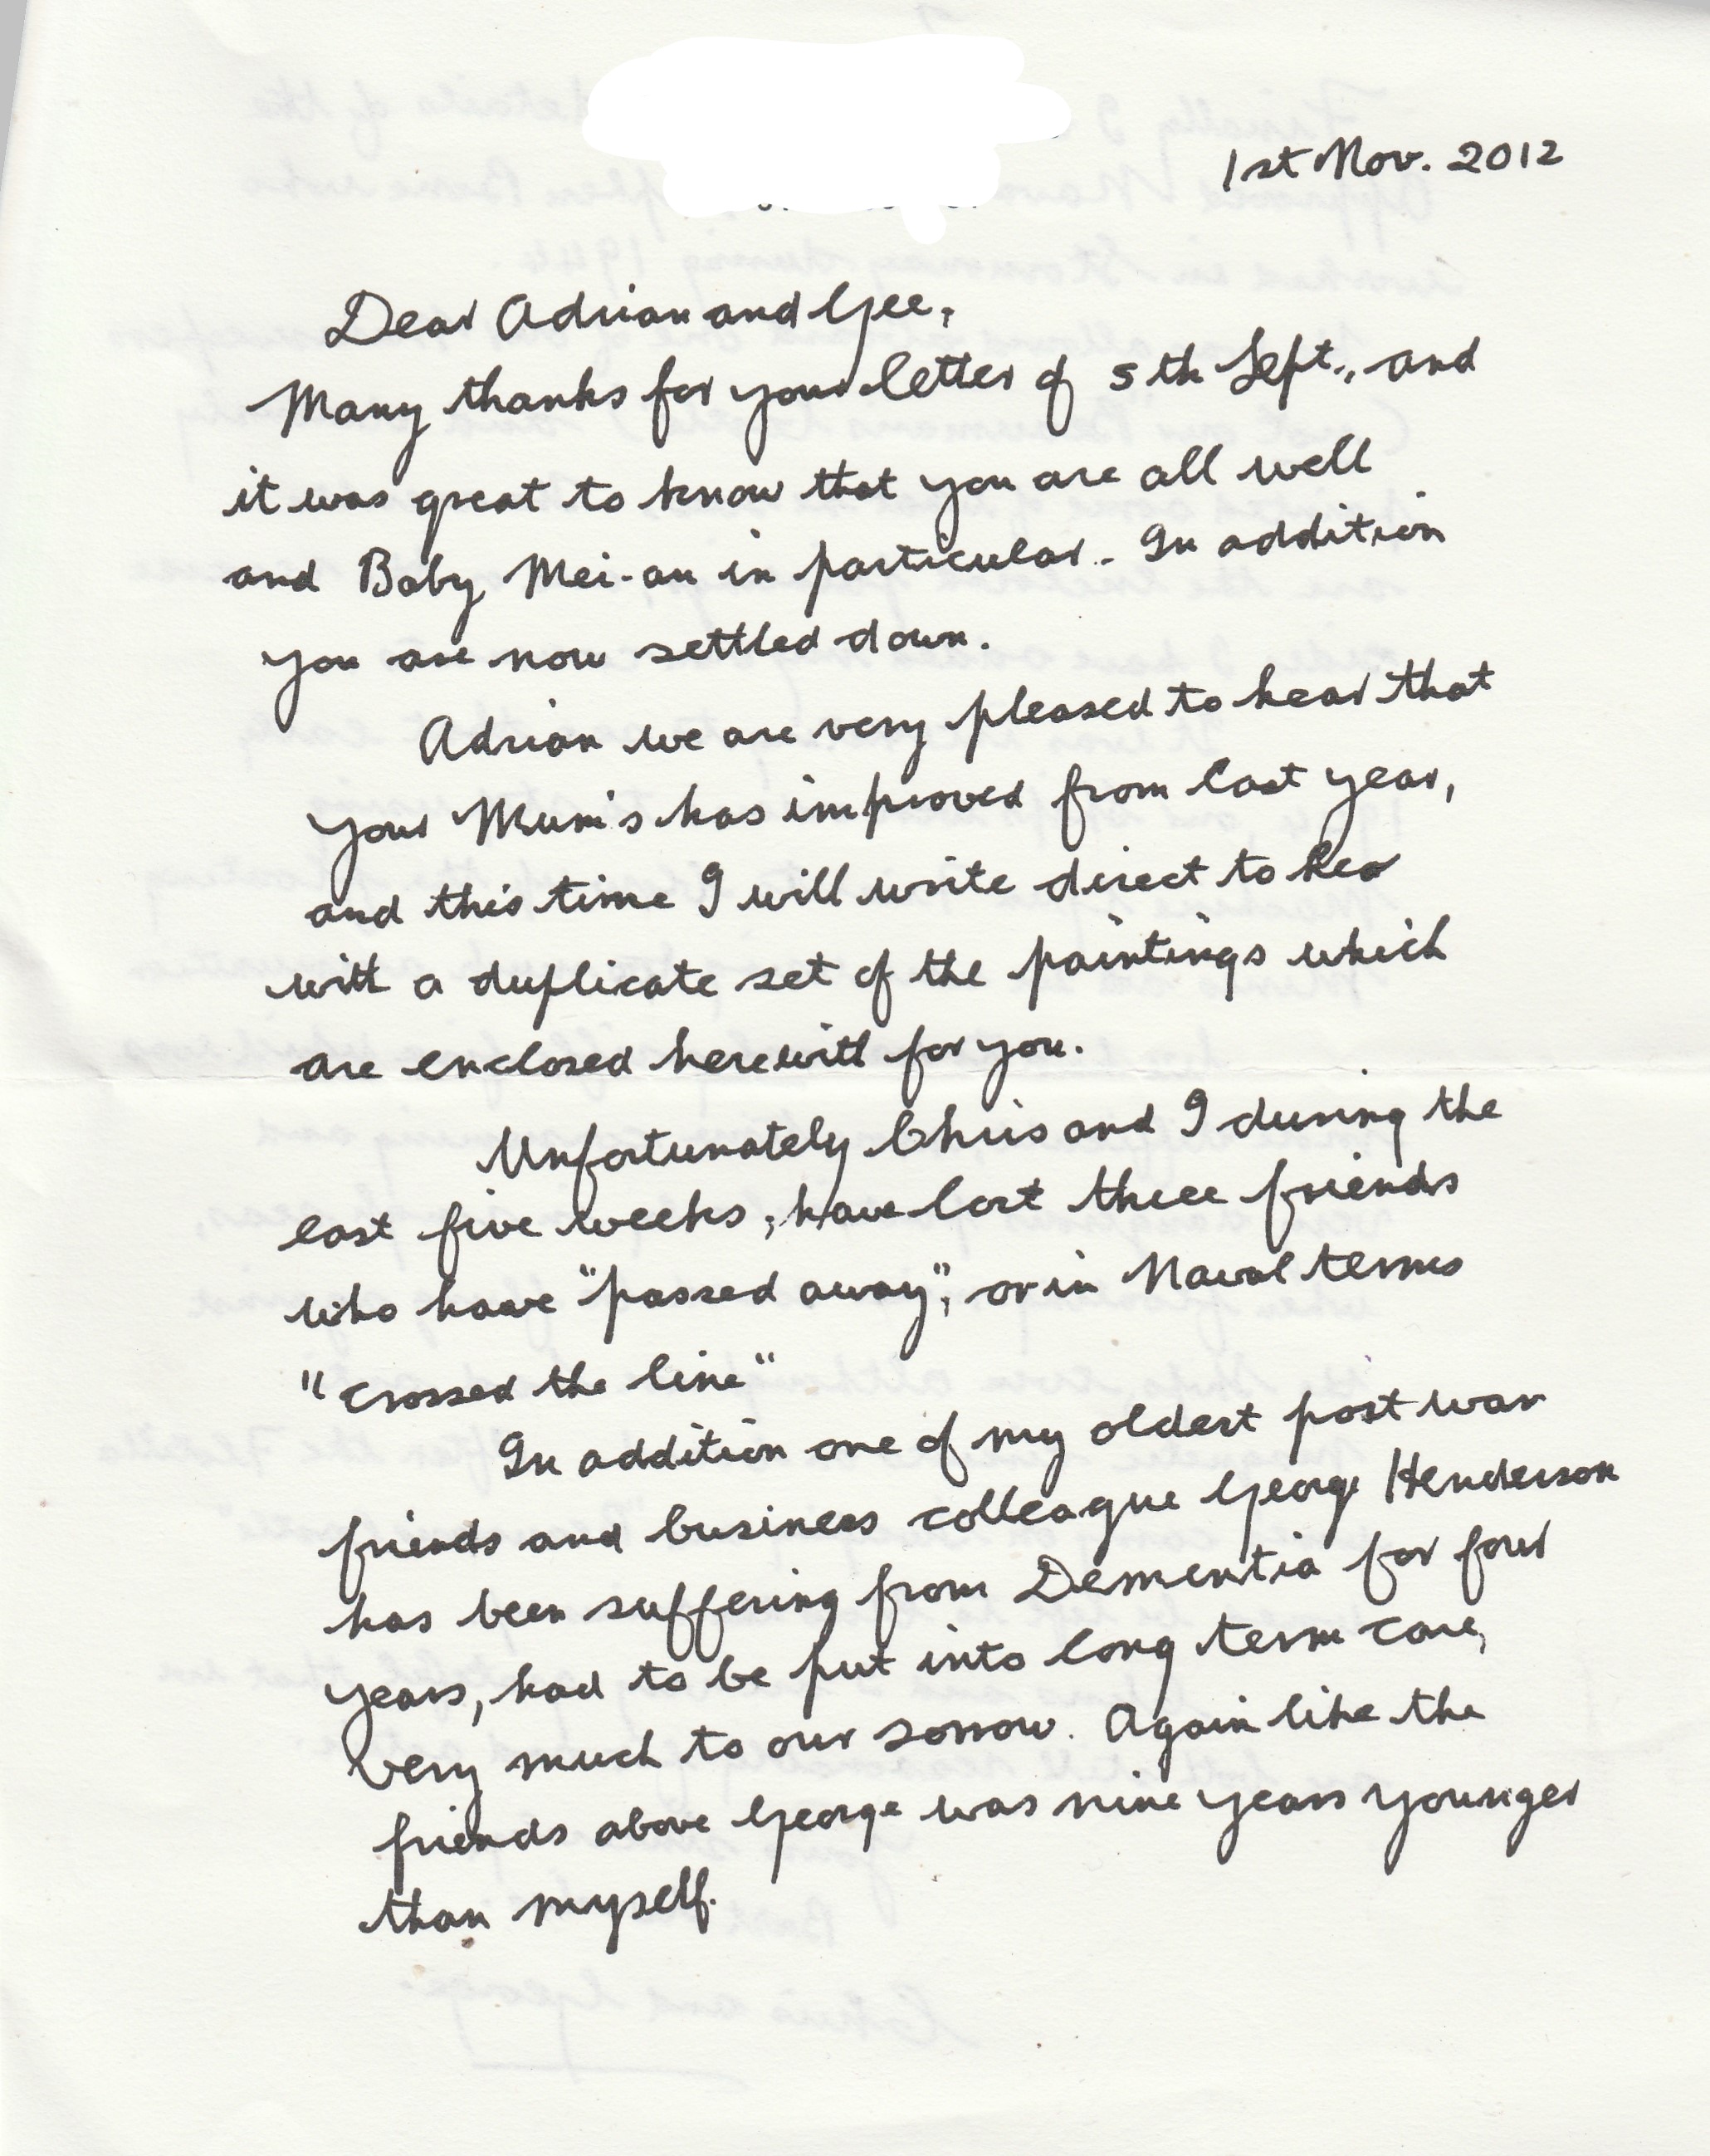 1st Nov. 2012
Dear Adrian and Gee,
Many thanks for your letter of 5th Sept., and
it was great to know that you are all well
and Baby Mei-an in particular. In addition
you are now settled down.
Adrian we are very pleased to hear that
your Mum's has improved from last year,
and this time I will write direct to her
with a duplicate set of the paintings which
are enclosed herewith for you.
Unfortunately Chris and I during the
last five weeks, have lost three friends
who have "passed away", or in Naval terms
"crossed the line"
In addition one of my oldest post war
friends and business colleague George Henderson
has been suffering from Dementia for four
years, had to be put into long term care,
very much to our sorrow. Again like the
friends above George was nine years younger
than myself.